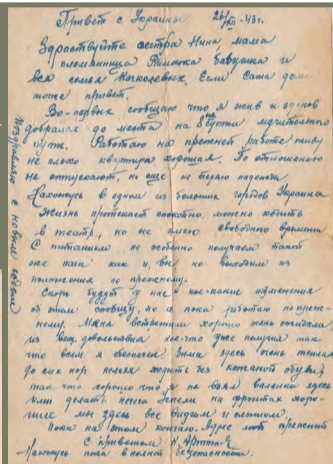 Привет с Украины 26/XII-43г.
Здравствуйте сестра Нина мама
племянница Римочка бабушка и
вся семья Если Саша дома
тоже привет.
Во-первых сообщаю что я жив и здоров
добрался до места на 8ые сутки мучительного
пути. Работаю на прежней работе живу
не плохо квартира хорошая. По отношению
не отпускают, но еще не теряю надежды.
Нахожусь в одном из больших городов Украины
Жизнь протекает спокойно, можно ходить
в театр, но не имею свободного времени
С питанием не особенно получаем такой
же паек как и вы но выходим из
положения по прежнему.
Скоро будут у нас кое-какие изменения
об этом сообщу, но а пока работаю по преж-
нему. Меня встретили хорошо очень ожидали
из удовольствия кое-что уже получил так
что всем я обеспечен. Зима здесь очень теплая
до сих пор нельзя ходить без кожаной обуви,
так что хорошо что я не взял валенки здесь
ими делать нечего на фронтах хоро-
шие мы здесь все видим и слышим.
Пока на этом кончаю. Адрес мой прежний
с приветом
Нахожусь пока в полной безопасности.
Поздравляю с новым годом